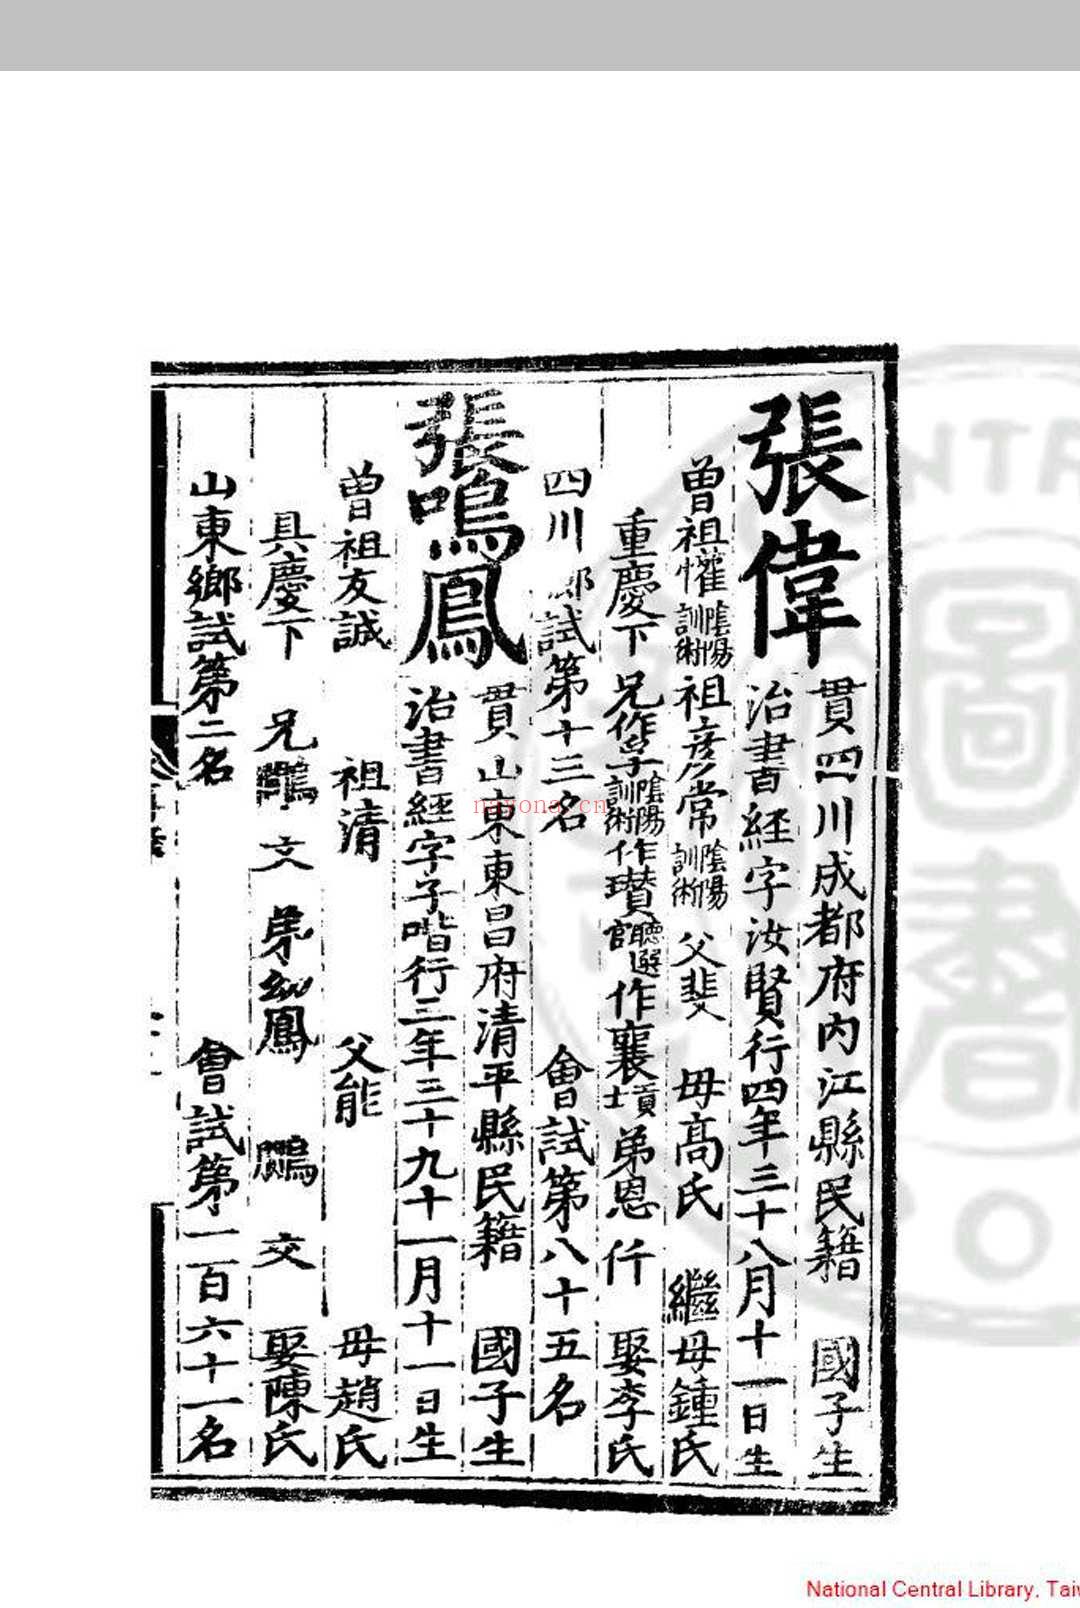 張偉
貫四川成都府內江縣民籍 國子生
治書經字汝賢行四年三十八月十一日生
曾祖懽陰陽訓術 祖彥常陰陽訓術 父斐 母高氏 繼母鍾氏
重慶下 兄作孚陰陽訓術 作瓚聽選官 作襄貢士 弟恩 仟 娶李氏
四川鄉試第十三名 會試第八十五名
張鳴鳳
貫山東東昌府清平縣民籍 國子生
治書經字子喈行三年三十九十一月十一日生
曾祖友誠 祖清 父能 母趙氏
具慶下 兄鵬文 弟鳳 鵬交 娶陳氏
山東鄉試第二名 會試第一百六十一名
nayona.cn
National Central Library, Taiw